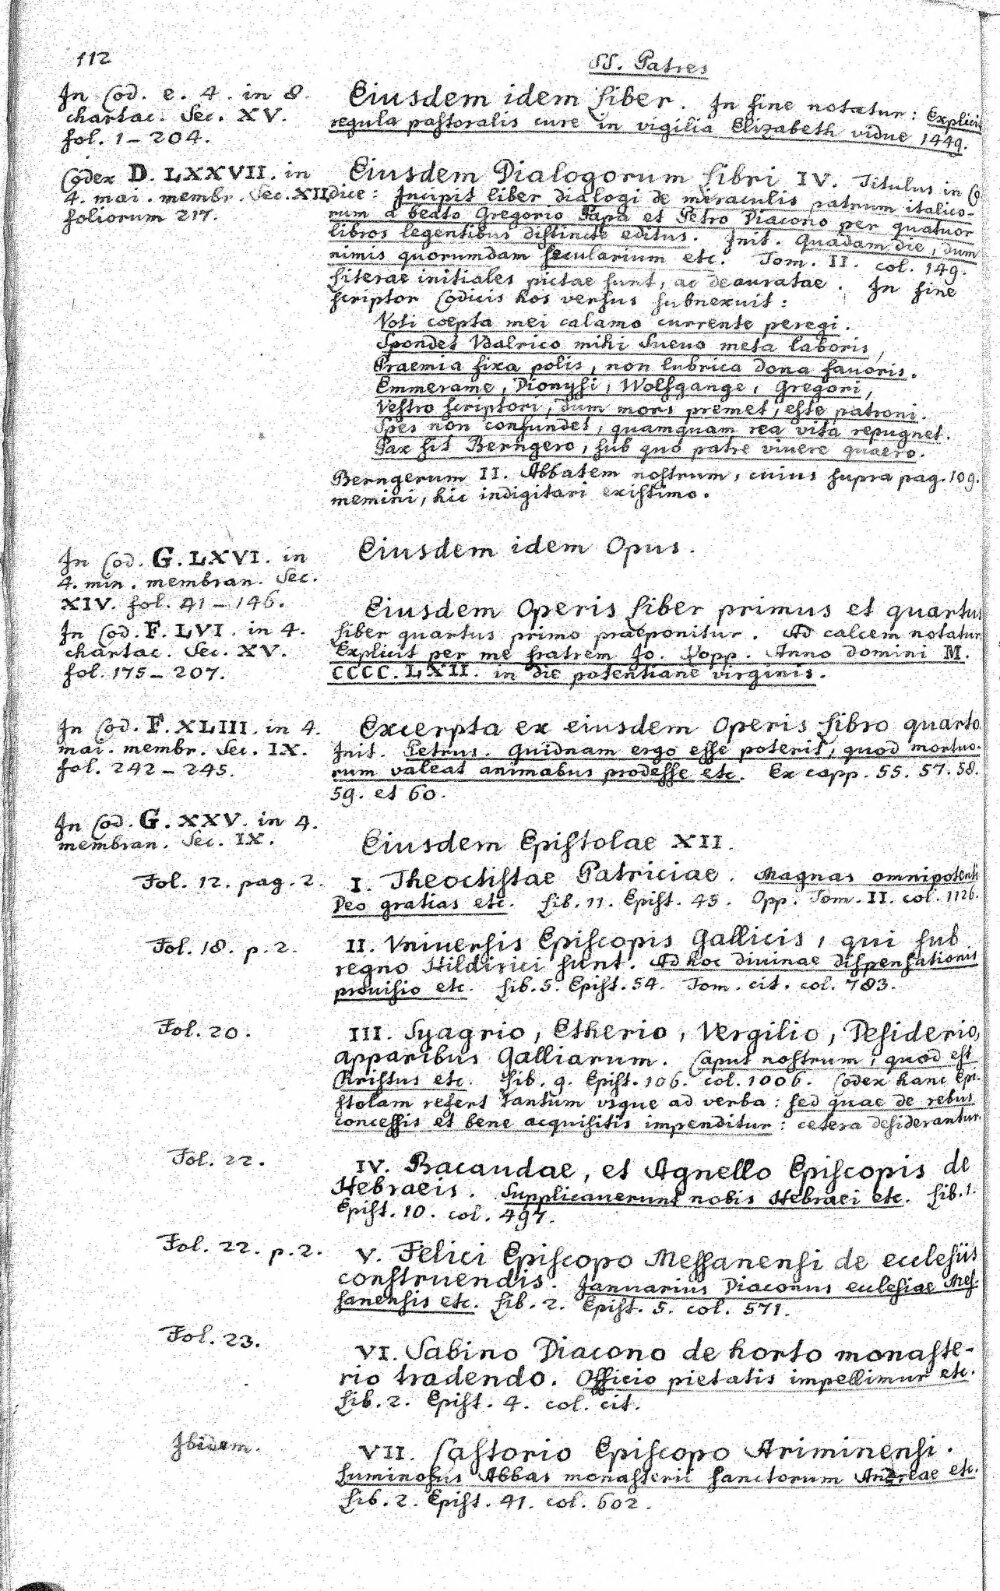 112
SS. Patres
In Cod. e. 4. in 8.
chartac. Sec. XV.
fol. 1-204.
Eiusdem idem Liber. In fine notatur: Explicit
regula pastoralis cure in vigilia Elizabeth vidue 1449.
Codex D. LXXVII. in
4. mai. membr. Sec. XII.
foliorum 217.
Eiusdem Dialogorum Libri IV. Titulus in Co-
dice: Incipit liber dialogi de miraculis patrum italico-
rum a beato Gregorio Papa et Petro Diacono per quatuor
libros legentibus distincte editus. Init. Quadam die, dum
nimis quorumdam secularium etc. Tom. II. col. 149.
Literae initiales pictae sunt, ac deauratae. In fine
scriptor Codicis hos versus subnexuit:
Voti coepta mei calamo currente peregi.
Spondet Vdalrico mihi Sueuo meta laboris,
Praemia fixa polis, non lubrica dona fauoris.
Emmerame, Dionysi, Wolfgange, Gregori,
Vestro scriptori, dum mors premet, este patroni.
Spes non confundet, quamquam rea vita repugnet.
Pax sit Berngero, sub quo patre viuere quaero.
Berngerum II. Abbatem nostrum, cuius supra pag. 109.
memini, hic indigitari existimo.
In Cod. G. LXVI. in
4. min. membran. Sec.
XIV. fol. 41-146.
Eiusdem idem Opus.
In Cod. F. LVI. in 4.
chartac. Sec. XV.
fol. 175-207.
Eiusdem Operis Liber primus et quartus
Liber quartus primo praeponitur. Ad calcem notatur
Explicit per me fratrem Jo. Popp. Anno domini M.
CCCC. LXII. in die potentiane virginis.
In Cod. F. XLIII. in 4.
mai. membr. Sec. IX.
fol. 242-245.
Excerpta ex eiusdem Operis Libro quarto
Init. Petrus. Quidnam ergo esse poterit, quod mortuo-
rum valeat animabus prodesse etc. Ex capp. 55. 57. 58.
59. et 60.
In Cod. G. XXV. in 4.
membran. Sec. IX.
Eiusdem Epistolae XII.
Fol. 12. pag. 2.
I. Theoctistae Patriciae. Magnas omnipotenti
Deo gratias etc. Lib. 11. Epist. 45. Opp. Tom. II. col. 1126.
Fol. 18. p. 2.
II. Vniuersis Episcopis Gallicis, qui sub
regno Hildirici sunt. Ad hoc diuinae dispensationis
prouisio etc. Lib. 5. Epist. 54. Tom. cit. col. 783.
Fol. 20.
III. Syagrio, Etherio, Vergilio, Desiderio,
apparibus Galliarum. Caput nostrum, quod est
Christus etc. Lib. 9. Epist. 106. col. 1006. Codex hanc Epi-
stolam refert tantum vsque ad verba: sed quae de rebus
concessis et bene acquisitis impenditur: cetera desiderantur.
Fol. 22.
IV. Bacaudae, et Agnello Episcopis de
Hebraeis. Supplicauerunt nobis Hebraei etc. Lib. 1.
Epist. 10. col. 497.
Fol. 22. p. 2.
V. Felici Episcopo Messanensi de ecclesiis
construendis. Januarius Diaconus ecclesiae Mes-
sanensis etc. Lib. 2. Epist. 5. col. 571.
Fol. 23.
VI. Sabino Diacono de horto monaste-
rio tradendo. Officio pietatis impellimur etc.
Lib. 2. Epist. 4. col. cit.
Ibidem.
VII. Castorio Episcopo Ariminensi.
Luminosus Abbas monasterii sanctorum Andreae etc.
Lib. 2. Epist. 41. col. 602.